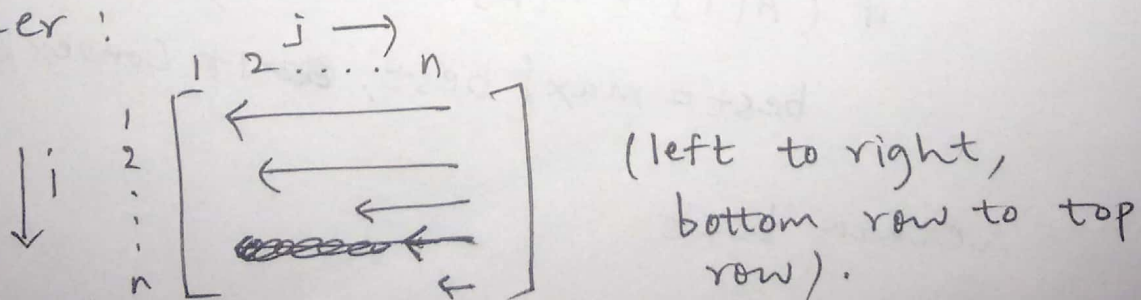 er :
j →
1 2 . . . . n
1
↓ i 2 (left to right,
. bottom row to top
. row).
n